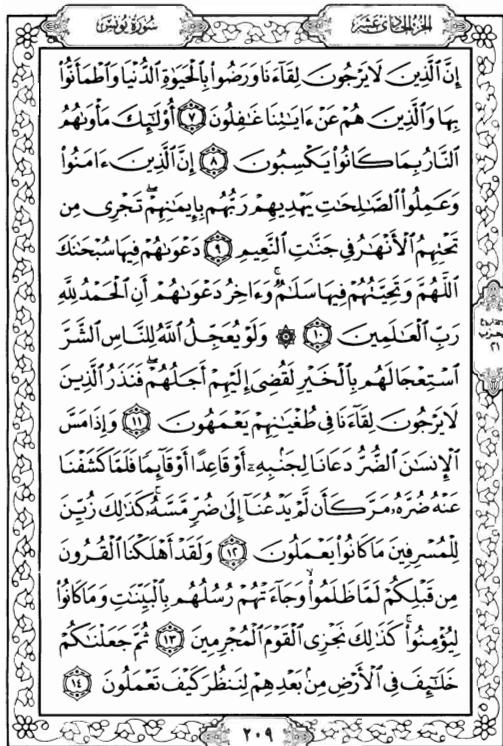 سورة يونس
الجزء الحادي عشر
إِنَّ ٱلَّذِينَ لَا يَرْجُونَ لِقَآءَنَا وَرَضُوا۟ بِٱلْحَيَوٰةِ ٱلدُّنْيَا وَٱطْمَأَنُّوا۟
بِهَا وَٱلَّذِينَ هُمْ عَنْ ءَايَـٰتِنَا غَـٰفِلُونَ ٧ أُو۟لَـٰٓئِكَ مَأْوَىٰهُمُ
ٱلنَّارُ بِمَا كَانُوا۟ يَكْسِبُونَ ٨ إِنَّ ٱلَّذِينَ ءَامَنُوا۟
وَعَمِلُوا۟ ٱلصَّـٰلِحَـٰتِ يَهْدِيهِمْ رَبُّهُم بِإِيمَـٰنِهِمْ ۖ تَجْرِى مِن
تَحْتِهِمُ ٱلْأَنْهَـٰرُ فِى جَنَّـٰتِ ٱلنَّعِيمِ ٩ دَعْوَىٰهُمْ فِيهَا سُبْحَـٰنَكَ
ٱللَّهُمَّ وَتَحِيَّتُهُمْ فِيهَا سَلَـٰمٌ ۚ وَءَاخِرُ دَعْوَىٰهُمْ أَنِ ٱلْحَمْدُ لِلَّهِ
رَبِّ ٱلْعَـٰلَمِينَ ١٠ ۞ وَلَوْ يُعَجِّلُ ٱللَّهُ لِلنَّاسِ ٱلشَّرَّ
ٱسْتِعْجَالَهُم بِٱلْخَيْرِ لَقُضِىَ إِلَيْهِمْ أَجَلُهُمْ ۖ فَنَذَرُ ٱلَّذِينَ
لَا يَرْجُونَ لِقَآءَنَا فِى طُغْيَـٰنِهِمْ يَعْمَهُونَ ١١ وَإِذَا مَسَّ
ٱلْإِنسَـٰنَ ٱلضُّرُّ دَعَانَا لِجَنۢبِهِۦٓ أَوْ قَاعِدًا أَوْ قَآئِمًا فَلَمَّا كَشَفْنَا
عَنْهُ ضُرَّهُۥ مَرَّ كَأَن لَّمْ يَدْعُنَآ إِلَىٰ ضُرٍّ مَّسَّهُۥ ۚ كَذَٰلِكَ زُيِّنَ
لِلْمُسْرِفِينَ مَا كَانُوا۟ يَعْمَلُونَ ١٢ وَلَقَدْ أَهْلَكْنَا ٱلْقُرُونَ
مِن قَبْلِكُمْ لَمَّا ظَلَمُوا۟ ۙ وَجَآءَتْهُمْ رُسُلُهُم بِٱلْبَيِّنَـٰتِ وَمَا كَانُوا۟
لِيُؤْمِنُوا۟ ۚ كَذَٰلِكَ نَجْزِى ٱلْقَوْمَ ٱلْمُجْرِمِينَ ١٣ ثُمَّ جَعَلْنَـٰكُمْ
خَلَـٰٓئِفَ فِى ٱلْأَرْضِ مِنۢ بَعْدِهِمْ لِنَنظُرَ كَيْفَ تَعْمَلُونَ ١٤
٢٠٩